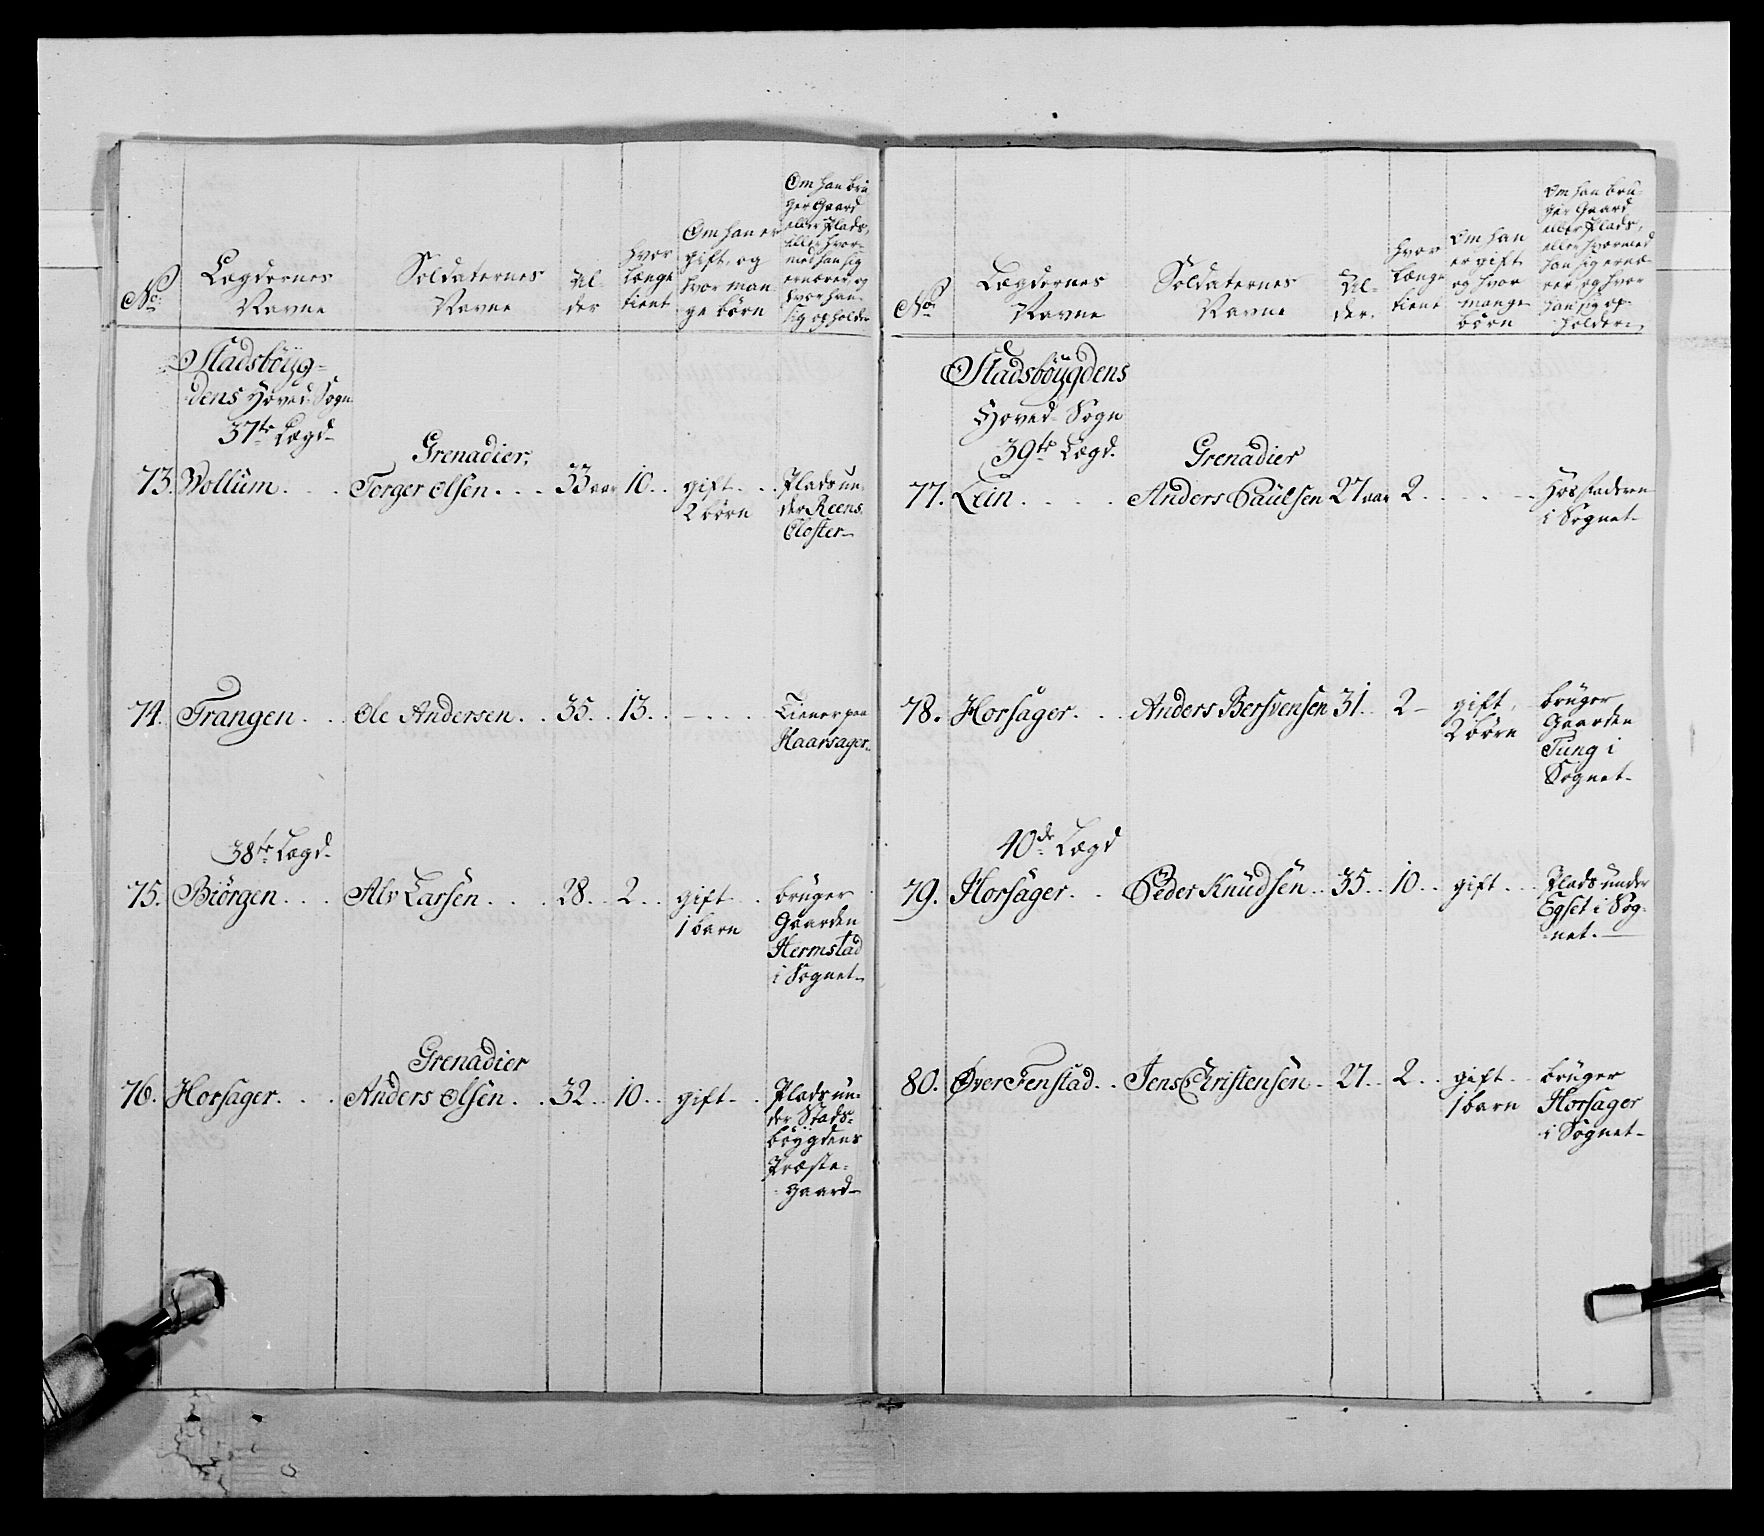 No:
Lægdernes
Navne
Soldaternes
Navne
Al-
der
hvor
længe
tient
Om han er
gift, og
hvor man
ge börn
Om han brü
ger Gaard
eller Plads,
eller hvor-
med han sig
ernærer, og
hvor han
sig opholder
Stadsböyg-
dens Hoved-Sogn
37te Lægd-
Grenadier,
73. Wollum. . . . Torger Olsen. . . . 33 aar 10. . gift. . . Plads ün-
2 börn der Reens
Closter-
74. Trangen. . . Ole Andersen. . . 35. . 13. . - . . . . Tiener paa
Haarsager.
38te Lægd-
75. Biörgen. . . . Alv Larsen. . . . 28. . 2. . . gift. . . brüger
1 barn Gaarden
Hermstad
i Sognet-
Grenadier
76. Horsager. . . . Anders Olsen. . . 32. . 10. . gift. . . Plads ün-
der Stads-
böygdens
Præste-
gaard-
No:
Lægdernes
Navne
Soldaternes
Navne
Al-
der.
hvor
længe
tient
Om han
er gift
og hvor
mange
börn
Om han brü-
ger Gaard
eller Plads,
eller hvormed
han sig ernæ-
rer, og hvor
han sig op-
holder
Stadsböygdens
Hoved-Sogn
39te Lægd.
Grenadier
77. Lein. . . . . Anders Paulsen 27 aar 2. . . . . . Hos Faderen
i Sognet-
78. Horsager. . . . Anders Bersvensen 31. . 2- gift, brüger
2 börn Gaarden
Tung i
Sognet-
40de Lægd
79. Horsager. . . Peder Knudsen. . 35. . 10. . gift. . . Plads ünder
Egset i Sog-
net.-
80. Øver Fenstad. . Jens Christensen. . 27. . 2. . gift. . brüger
1 barn Horsager
i Sognet-